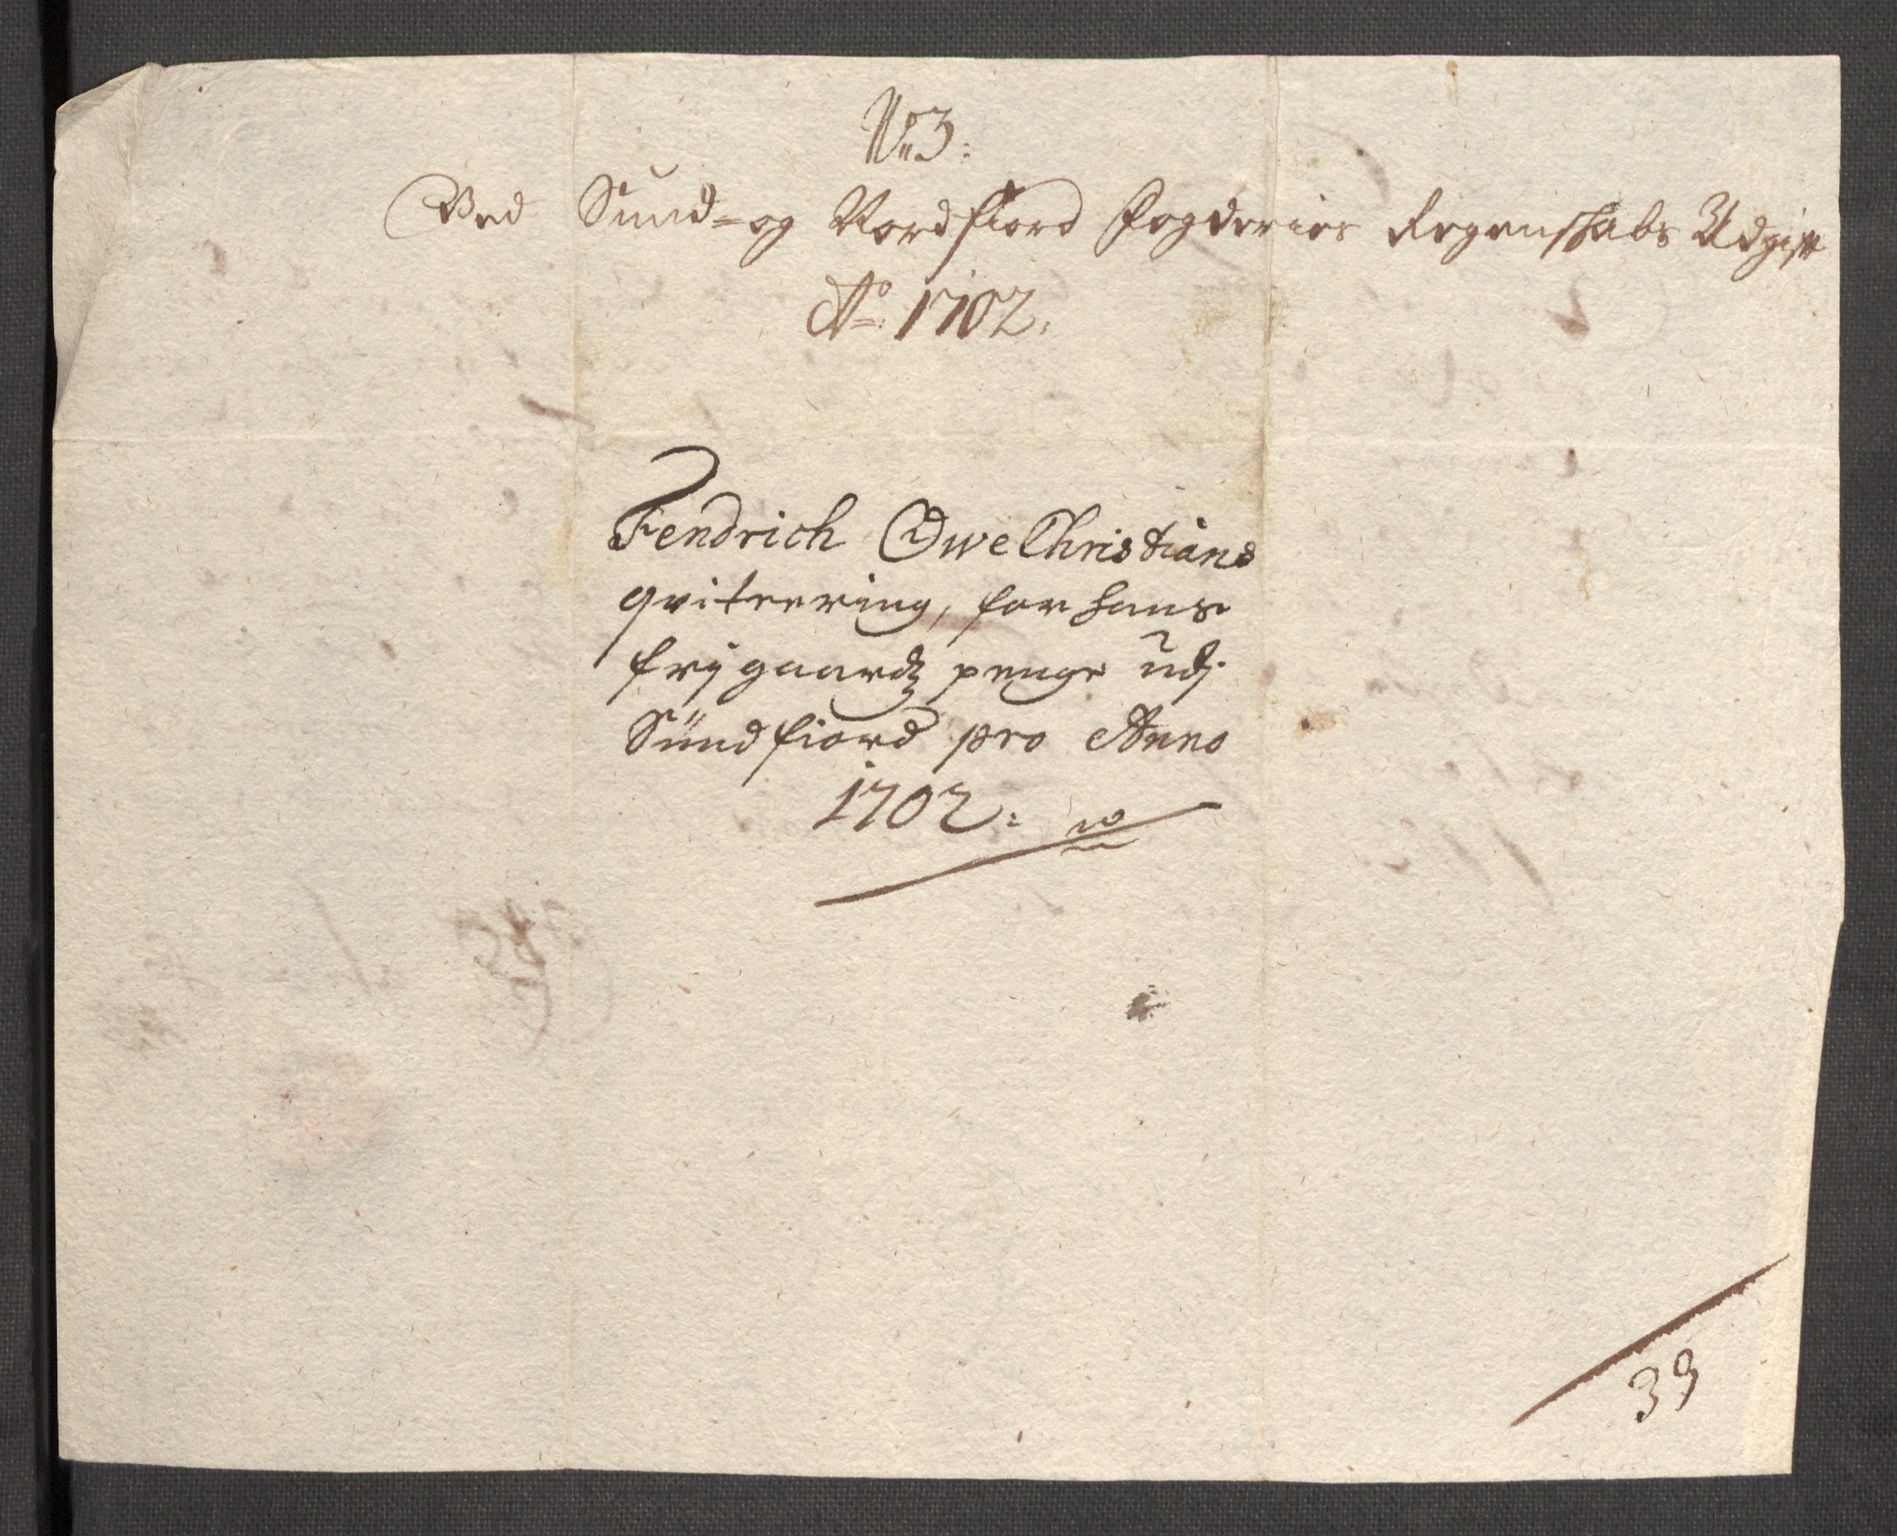 No 3:
Ved Sund- og Nordfiord Fogderies Regenskabs Udgift
Ao: 1702.
Fendrich Owe Christians
qviteering, for hans
frij gaardz penge udj
Sündfiord pro Anno
1702:
39